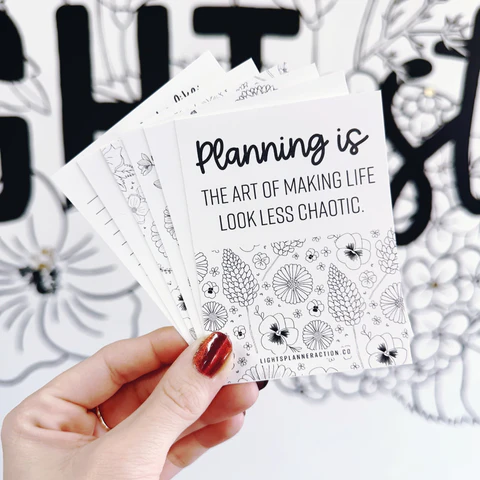 GHT
Planning is
THE ART OF MAKING LIFE
LOOK LESS CHAOTIC.
LIGHTSPLANNERACTION.CO